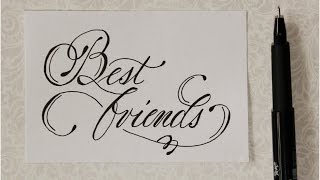 Best
friends